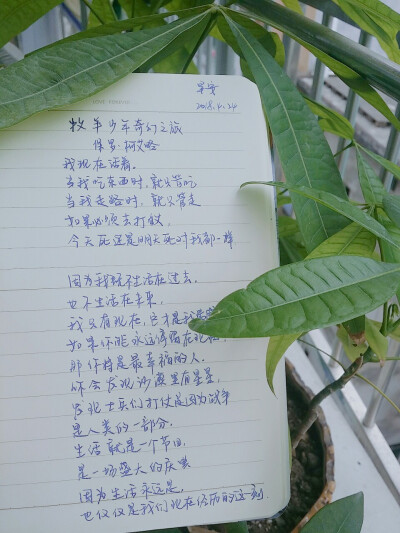 早安
2018.4.24
牧羊少年奇幻之旅
保罗·柯艾略
我现在活着.
当我吃东西时,就只管吃
当我走路时,就只管走
如果必须去打仗,
今天死还是明天死对我都一样.
因为我既不生活在过去,
也不生活在未来,
我只有现在,它才是我
如果你能永远停留在现
那你将是最幸福的人.
你会发现沙漠里有星星,
发现士兵们打仗是因为战争
是人类的一部分.
生活就是一个节日,
是一场盛大的庆典
因为生活永远是,
也仅仅是我们现在经历的这一刻.